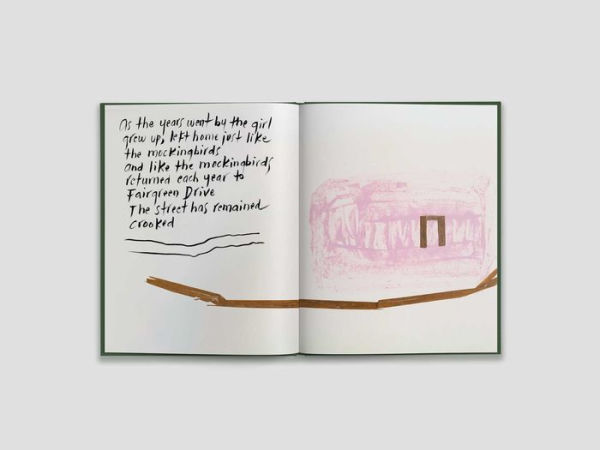 As the years went by the girl
grew up, left home just like
the mockingbirds
and like the mockingbirds
returned each year to
Fairgreen Drive
The street has remained
crooked